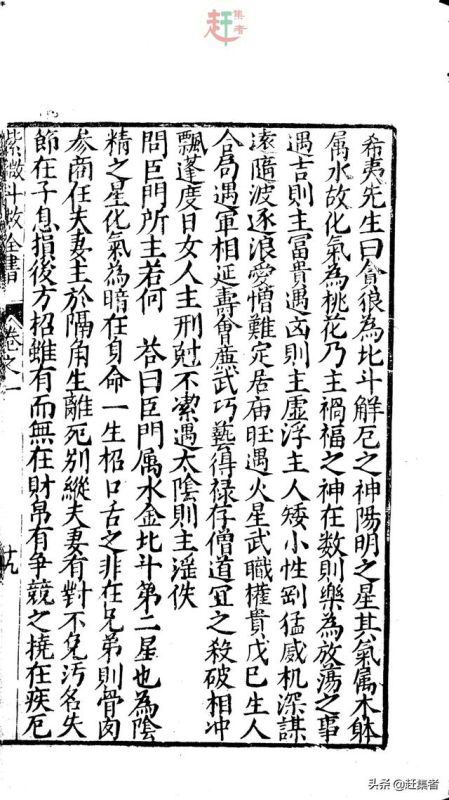 赶集者
希夷先生曰貪狼為北斗解厄之神陽明之星其氣属木躰
属水故化氣為桃花乃主禍福之神在数則樂為放荡之事
遇吉則主冨貴遇凶則主虚浮主人矮小性剛猛威机深謀
遠隨波逐浪愛憎難定居庙旺遇火星武職權貴戊巳生人
合局遇軍相延壽會廉武巧藝得禄存僧道冝之殺破相冲
飄蓬度日女人主刑尅不潔遇太陰則主滛佚
問臣門所主若何　荅曰臣門属水金北斗第二星也為陰
精之星化氣為暗在身命一生招口舌之非在兄弟則骨肉
参商在夫妻主於隔角生離死別縱夫妻有對不免汚名失
節在子息損後方招雖有而無在財帛有争競之撓在疾厄
紫微斗数全書 卷之一 十九
头条 @赶集者